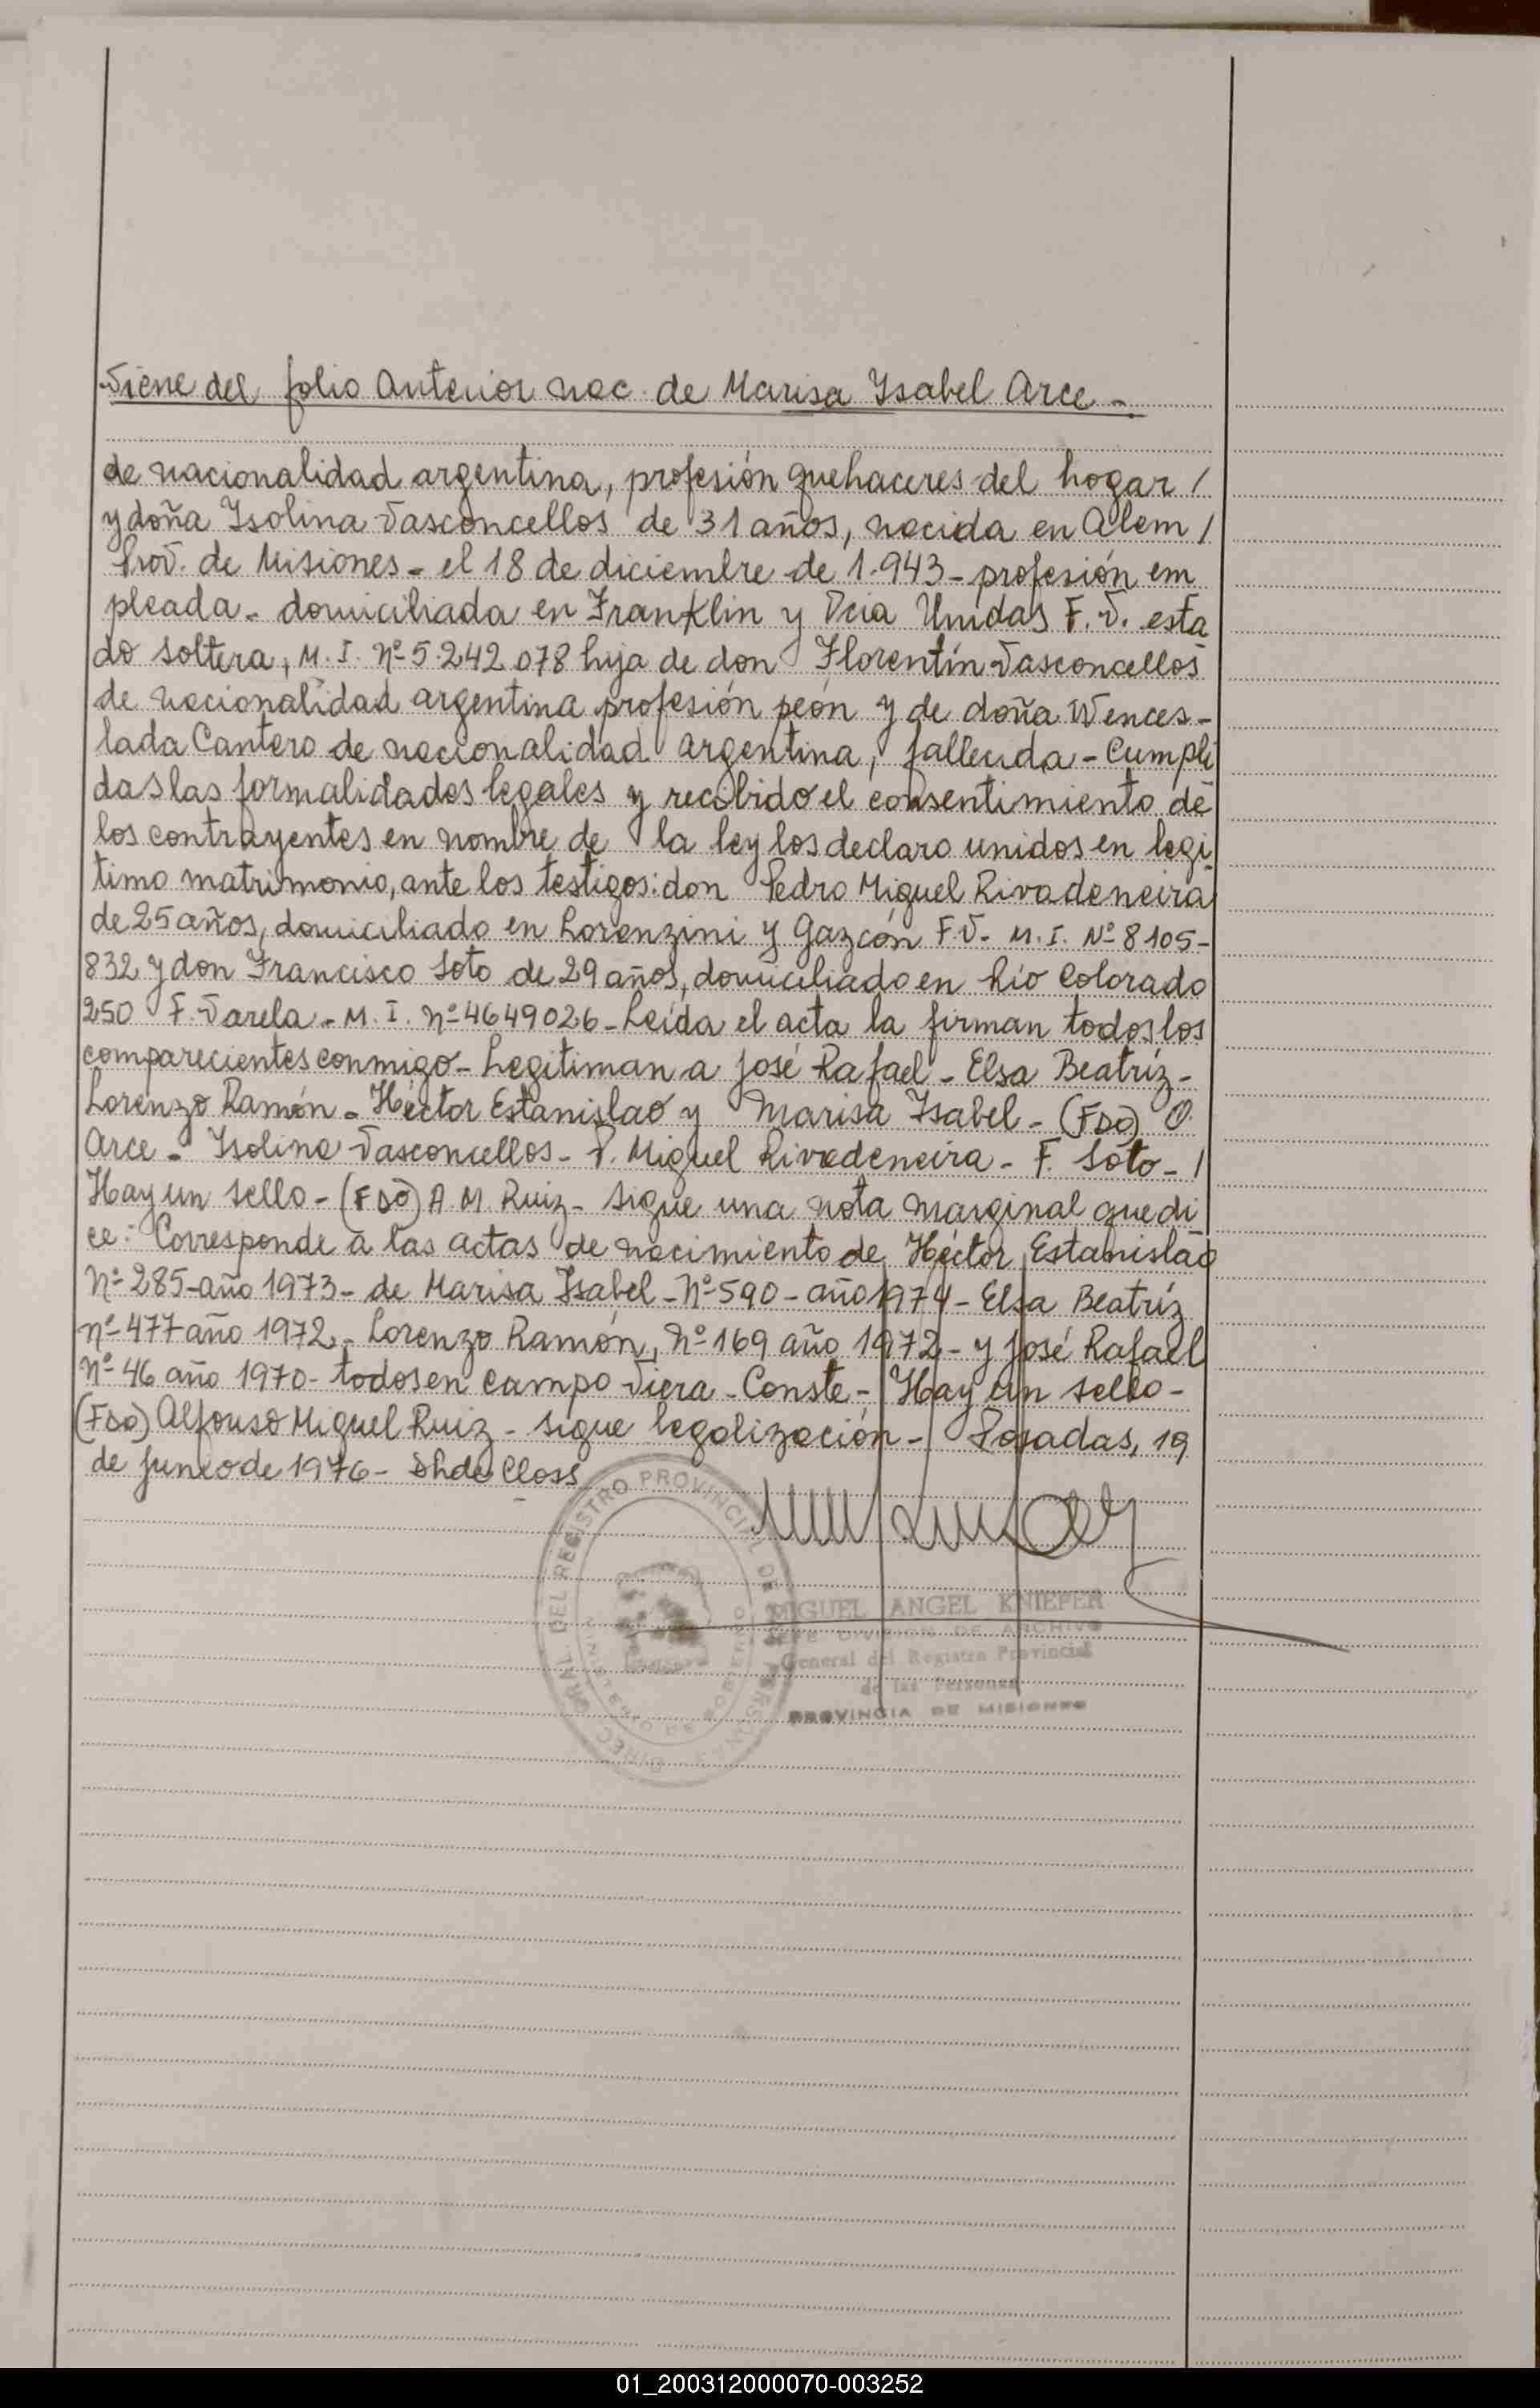 Viene del folio Anterior nac. de Marisa Ysabel Arce -
de nacionalidad argentina, profesión quehaceres del hogar /
y doña Ysolina Vasconcellos de 31 años, nacida en Alem /
Prov. de Misiones - el 18 de diciembre de 1.943 - profesión em
pleada - domiciliada en Franklin y Pcia Unidas F. V. esta
do soltera, M. I. Nº 5.242.078 hija de don Florentín Vasconcellos
de nacionalidad argentina profesión peón y de doña Wences-
lada Cantero de nacionalidad argentina, fallecida - Cumpli
das las formalidades legales y recibido el consentimiento de
los contrayentes en nombre de la ley los declaro unidos en legi
timo matrimonio, ante los testigos: don Pedro Miguel Rivadeneira
de 25 años, domiciliado en Lorenzini y Gazcón F.V. M. I. Nº 8105-
832 y don Francisco Soto de 29 años, domiciliado en Río Colorado
250 F. Varela - M. I. nº 4649026 - Leída el acta la firman todos los
comparecientes conmigo - Legitiman a José Rafael - Elsa Beatríz -
Lorenzo Ramón - Héctor Estanislao y Marisa Ysabel - (Fdo) O.
Arce - Ysolina Vasconcellos - P. Miguel Rivadeneira - F. Soto - /
Hay un sello - (Fdo) A. M. Ruiz - Sigue una nota marginal que di
ce: Corresponde a las actas de nacimiento de Héctor Estanislao
Nº 285 - año 1973 - de Marisa Ysabel - Nº 590 - año 1974 - Elsa Beatríz
nº 477 año 1972 - Lorenzo Ramón, Nº 169 año 1972 - y José Rafael
Nº 46 año 1970 - todos en Campo Viera - Conste - Hay un sello -
(Fdo) Alfonso Miguel Ruiz - Sigue legalización - Posadas, 19
de junio de 1976 - de Closs
MIGUEL ANGEL KNIEPER
JEFE DIVISION DE ARCHIVO
General del Registro Provincial
de las Personas
PROVINCIA DE MISIONES
DEL REGISTRO PROVINCIAL DE
MINISTERIO DE GOBIERNO
01_200312000070-003252